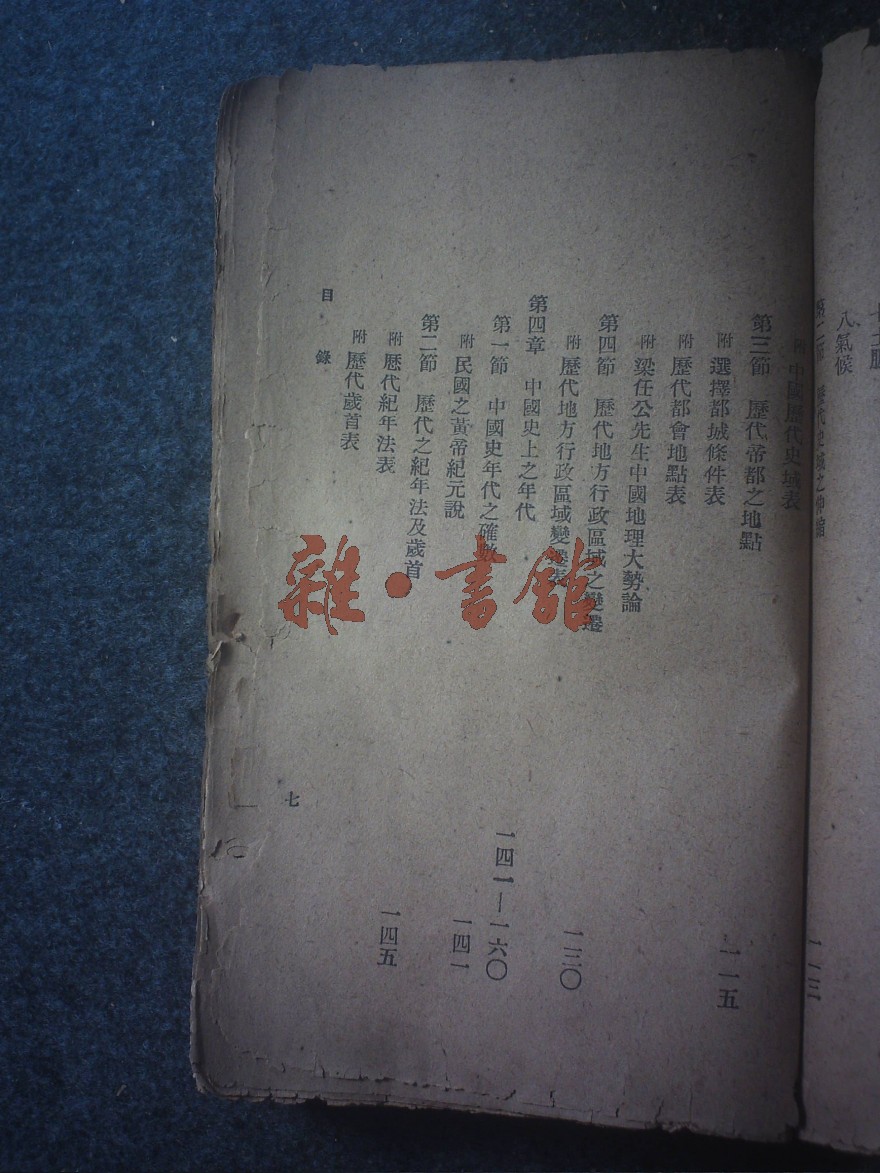 八氣候
附 中國歷代史域表
第三節 歷代帝都之地點
一一五
附 選擇都城條件表
附 歷代都會地點表
附 梁任公先生中國地理大勢論
第四節 歷代地方行政區域之變遷
一三〇
附 歷代地方行政區域變遷表
第四章 中國史上之年代
一四一—一六〇
第一節 中國史年代之確數
一四一
附 民國之黃帝紀元說
第二節 歷代之紀年法及歲首
一四五
附 歷代紀年法表
附 歷代歲首表
目錄
七
雜·書館